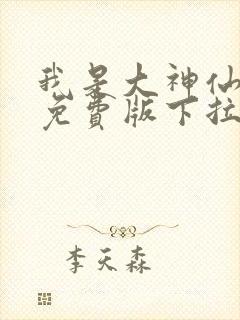 我是大神仙
免費版下拉
李天森